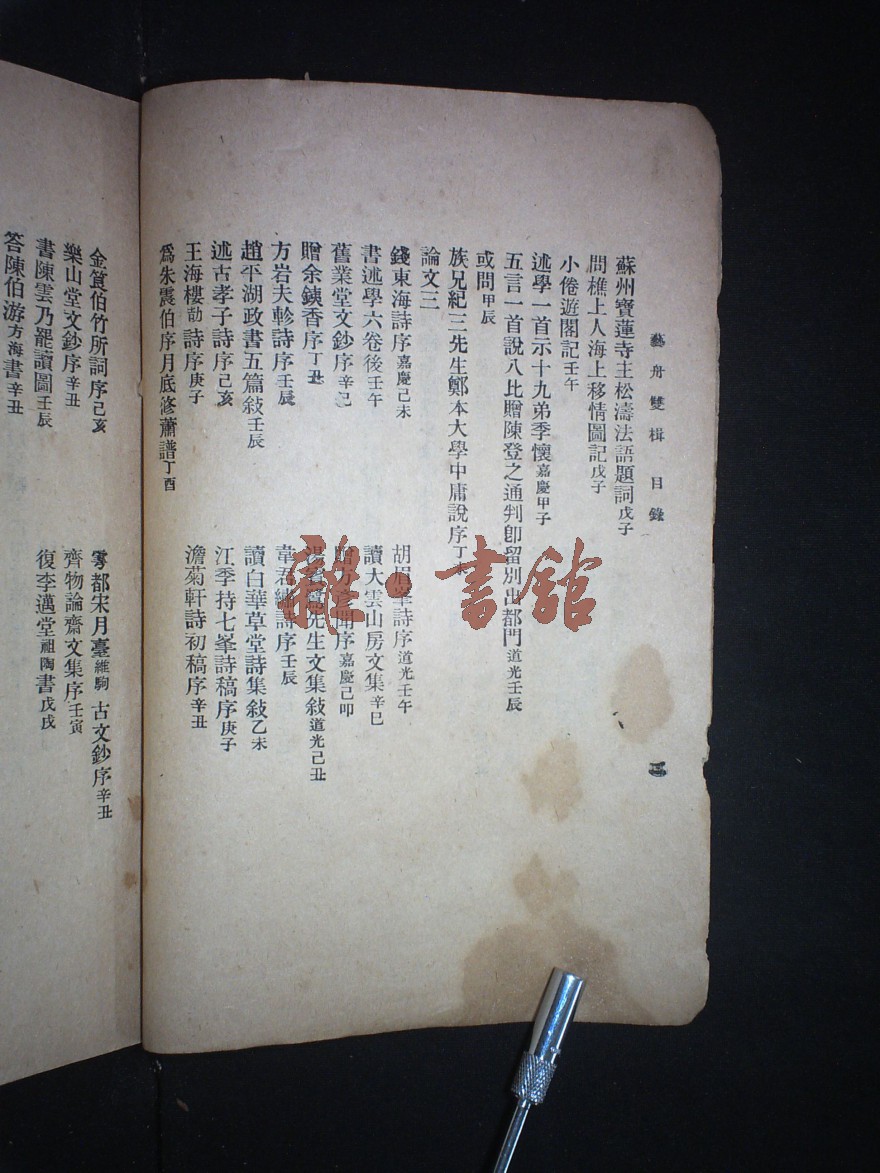 藝舟雙楫 目錄
三
蘇州寶蓮寺王松濤法語題詞戊子
問樵上人海上移情圖記戊子
小倦遊閣記壬午
述學一首示十九弟季懷嘉慶甲子
五言一首說八比贈陳登之通判卽留別出都門道光壬辰
或問甲辰
族兄紀三先生鄭本大學中庸說序丁未
論文三
錢東海詩序嘉慶己未
胡眉峯詩序道光壬午
書述學六卷後壬午
讀大雲山房文集辛巳
舊業堂文鈔序辛巳
聞序嘉慶己卯
贈余鐵香序丁丑
先生文集敍道光己丑
方岩夫軫詩序壬辰
韋君 詩序壬辰
趙平湖政書五篇敍壬辰
讀白華草堂詩集敍乙未
述古孝子詩序己亥
江季持七峯詩稿序庚子
王海樓劼詩序庚子
澹菊軒詩初稿序辛丑
爲朱震伯序月底修蕭譜丁酉
金筤伯竹所詞序己亥
雩都宋月臺維駒古文鈔序辛丑
樂山堂文鈔序辛丑
齊物論齋文集序壬寅
書陳雲乃罷讀圖壬辰
復李邁堂祖陶書戊戌
答陳伯游方海書辛丑
雜·書館